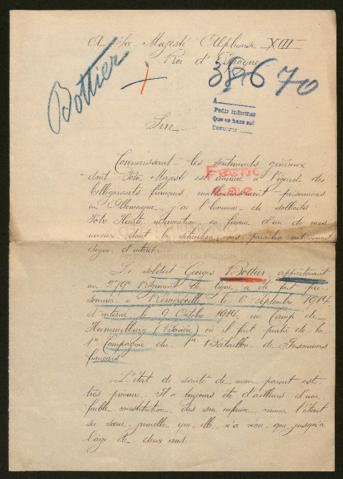 A Sa Majesté Alphonse XIII
Roi d'Espagne
Bottier
70
A
Pedir informes
Que se hace sal
Sire
Connaissant les sentiments généreux
dont Votre Majesté est animée à l'égard des
belligérants français, malheureusement prisonniers
en Allemagne, j'ai l'honneur de solliciter
Votre Haute intervention en faveur d'un de mes
dont la situation me paraît
digne d'intérêt.
Le soldat Georges Bottier, appartenant
au 279e Régiment de ligne a été fait pri-
sonnier à Remereville le 6 Septembre 1914
et interné le 9 Octobre 1914, au Camp de
Hammelburg (Bavière) où il fait partie de la
1ère Compagnie du 1er Bataillon de Prisonniers
français.
L'état de santé de mon parent est
très précaire. Il a toujours été d'ailleurs d'une
faible constitution, dès son enfance, comme l'était
sa sœur jumelle qui, elle, n'a vécu que jusqu'à
l'âge de deux ans.